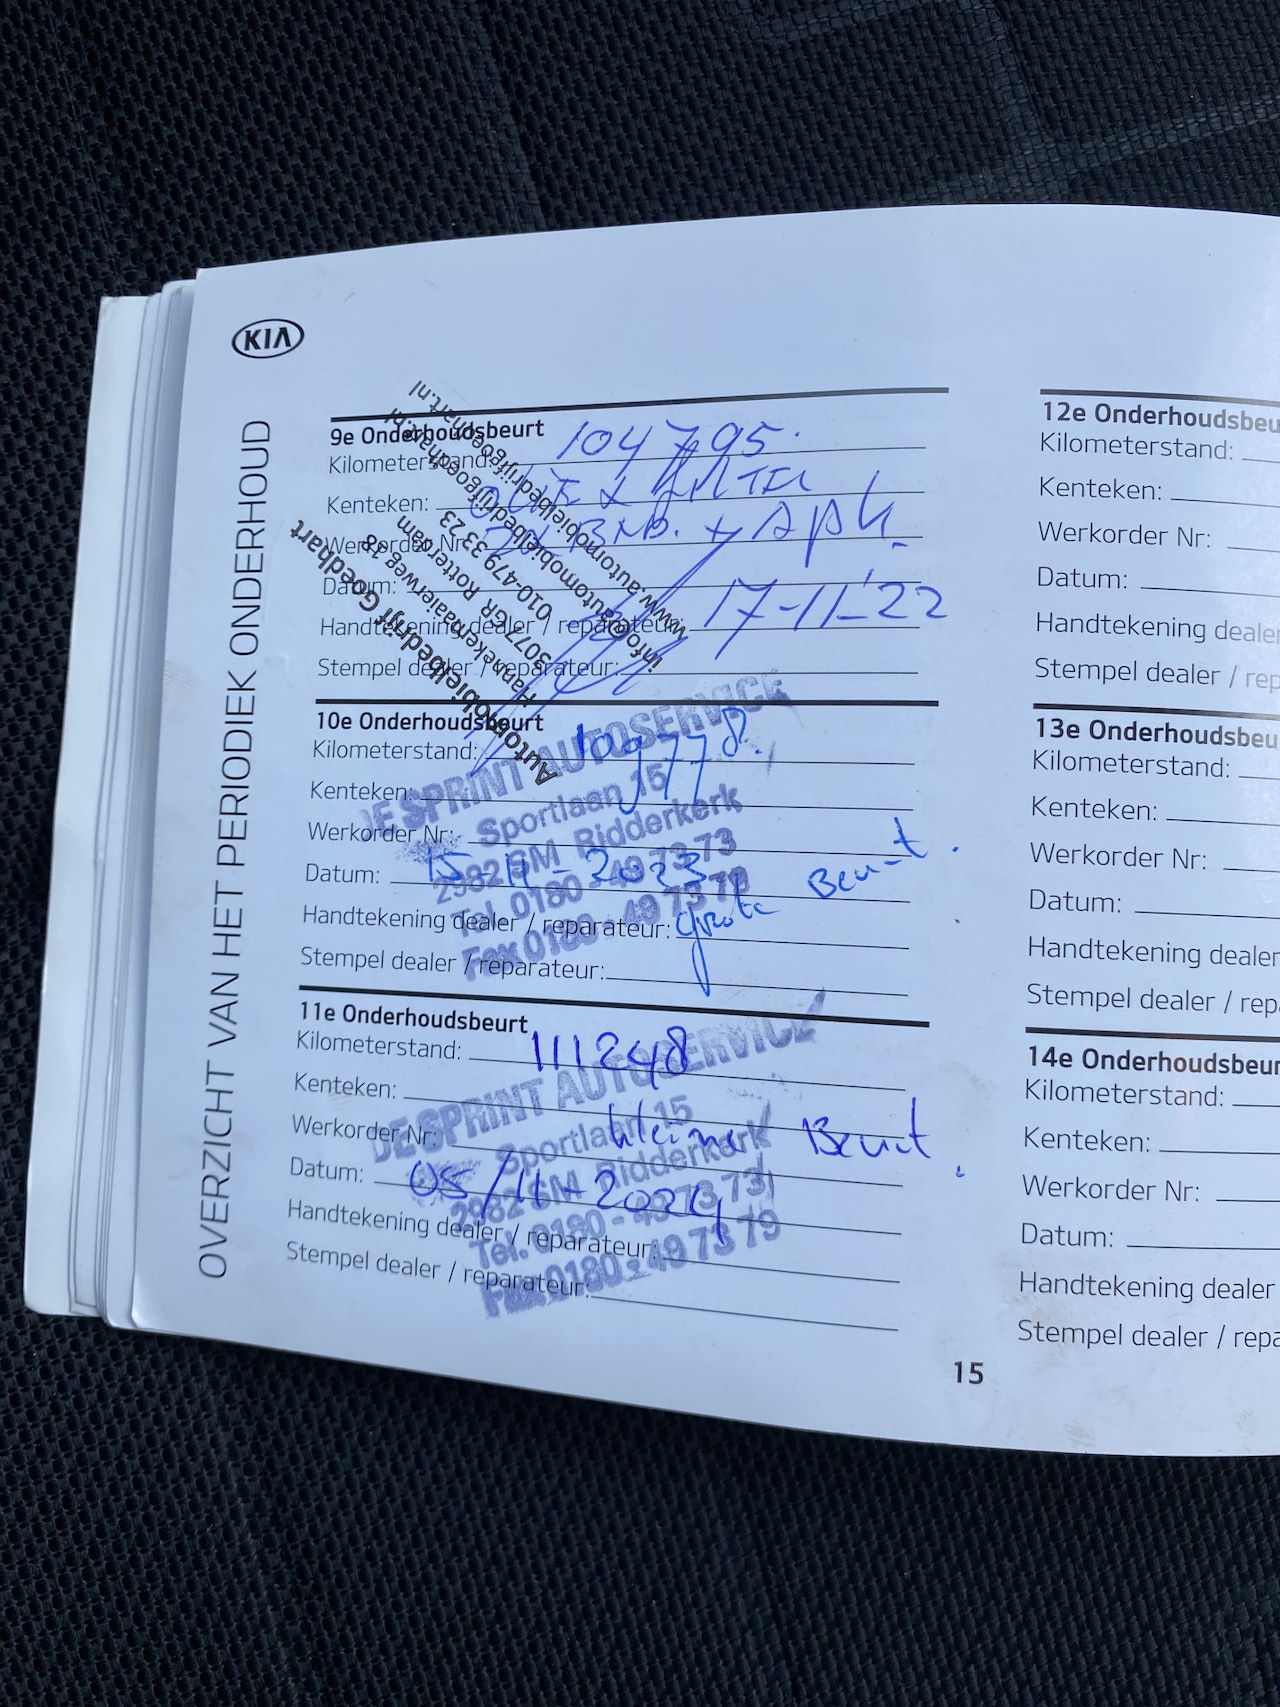 KIA
OVERZICHT VAN HET PERIODIEK ONDERHOUD
9e Onderhoudsbeurt
Kilometerstand: 104795.
Kenteken: OLIE & FILTER
Werkorder Nr: 2x BNB. + APK
Datum:
Handtekening dealer / reparateur: 17-11-'22
Stempel dealer / reparateur:
Automobielbedrijf Goedhart
Hannekemaaierweg 38
3077 GR Rotterdam
010-479 33 23
info@automobielbedrijfgoedhart.nl
www.automobielbedrijfgoedhart.nl
10e Onderhoudsbeurt
Kilometerstand: 109778.
Kenteken:
Werkorder Nr:
Datum: 15-11-2023
Handtekening dealer / reparateur: grote Beurt.
Stempel dealer / reparateur:
DE SPRINT AUTOSERVICE
Sportlaan 15
2982 SM Ridderkerk
Tel. 0180 - 49 73 73
Fax 0180 - 49 73 79
11e Onderhoudsbeurt
Kilometerstand: 111248
Kenteken:
Werkorder Nr: kleine Beurt.
Datum: 05/11-2024
Handtekening dealer / reparateur:
Stempel dealer / reparateur:
DE SPRINT AUTOSERVICE
Sportlaan 15
2982 SM Ridderkerk
Tel. 0180 - 49 73 73
Fax 0180 - 49 73 79
12e Onderhoudsbeu
Kilometerstand:
Kenteken:
Werkorder Nr:
Datum:
Handtekening dealer
Stempel dealer / rep
13e Onderhoudsbeu
Kilometerstand:
Kenteken:
Werkorder Nr:
Datum:
Handtekening dealer
Stempel dealer / repa
14e Onderhoudsbeur
Kilometerstand:
Kenteken:
Werkorder Nr:
Datum:
Handtekening dealer
Stempel dealer / repa
15